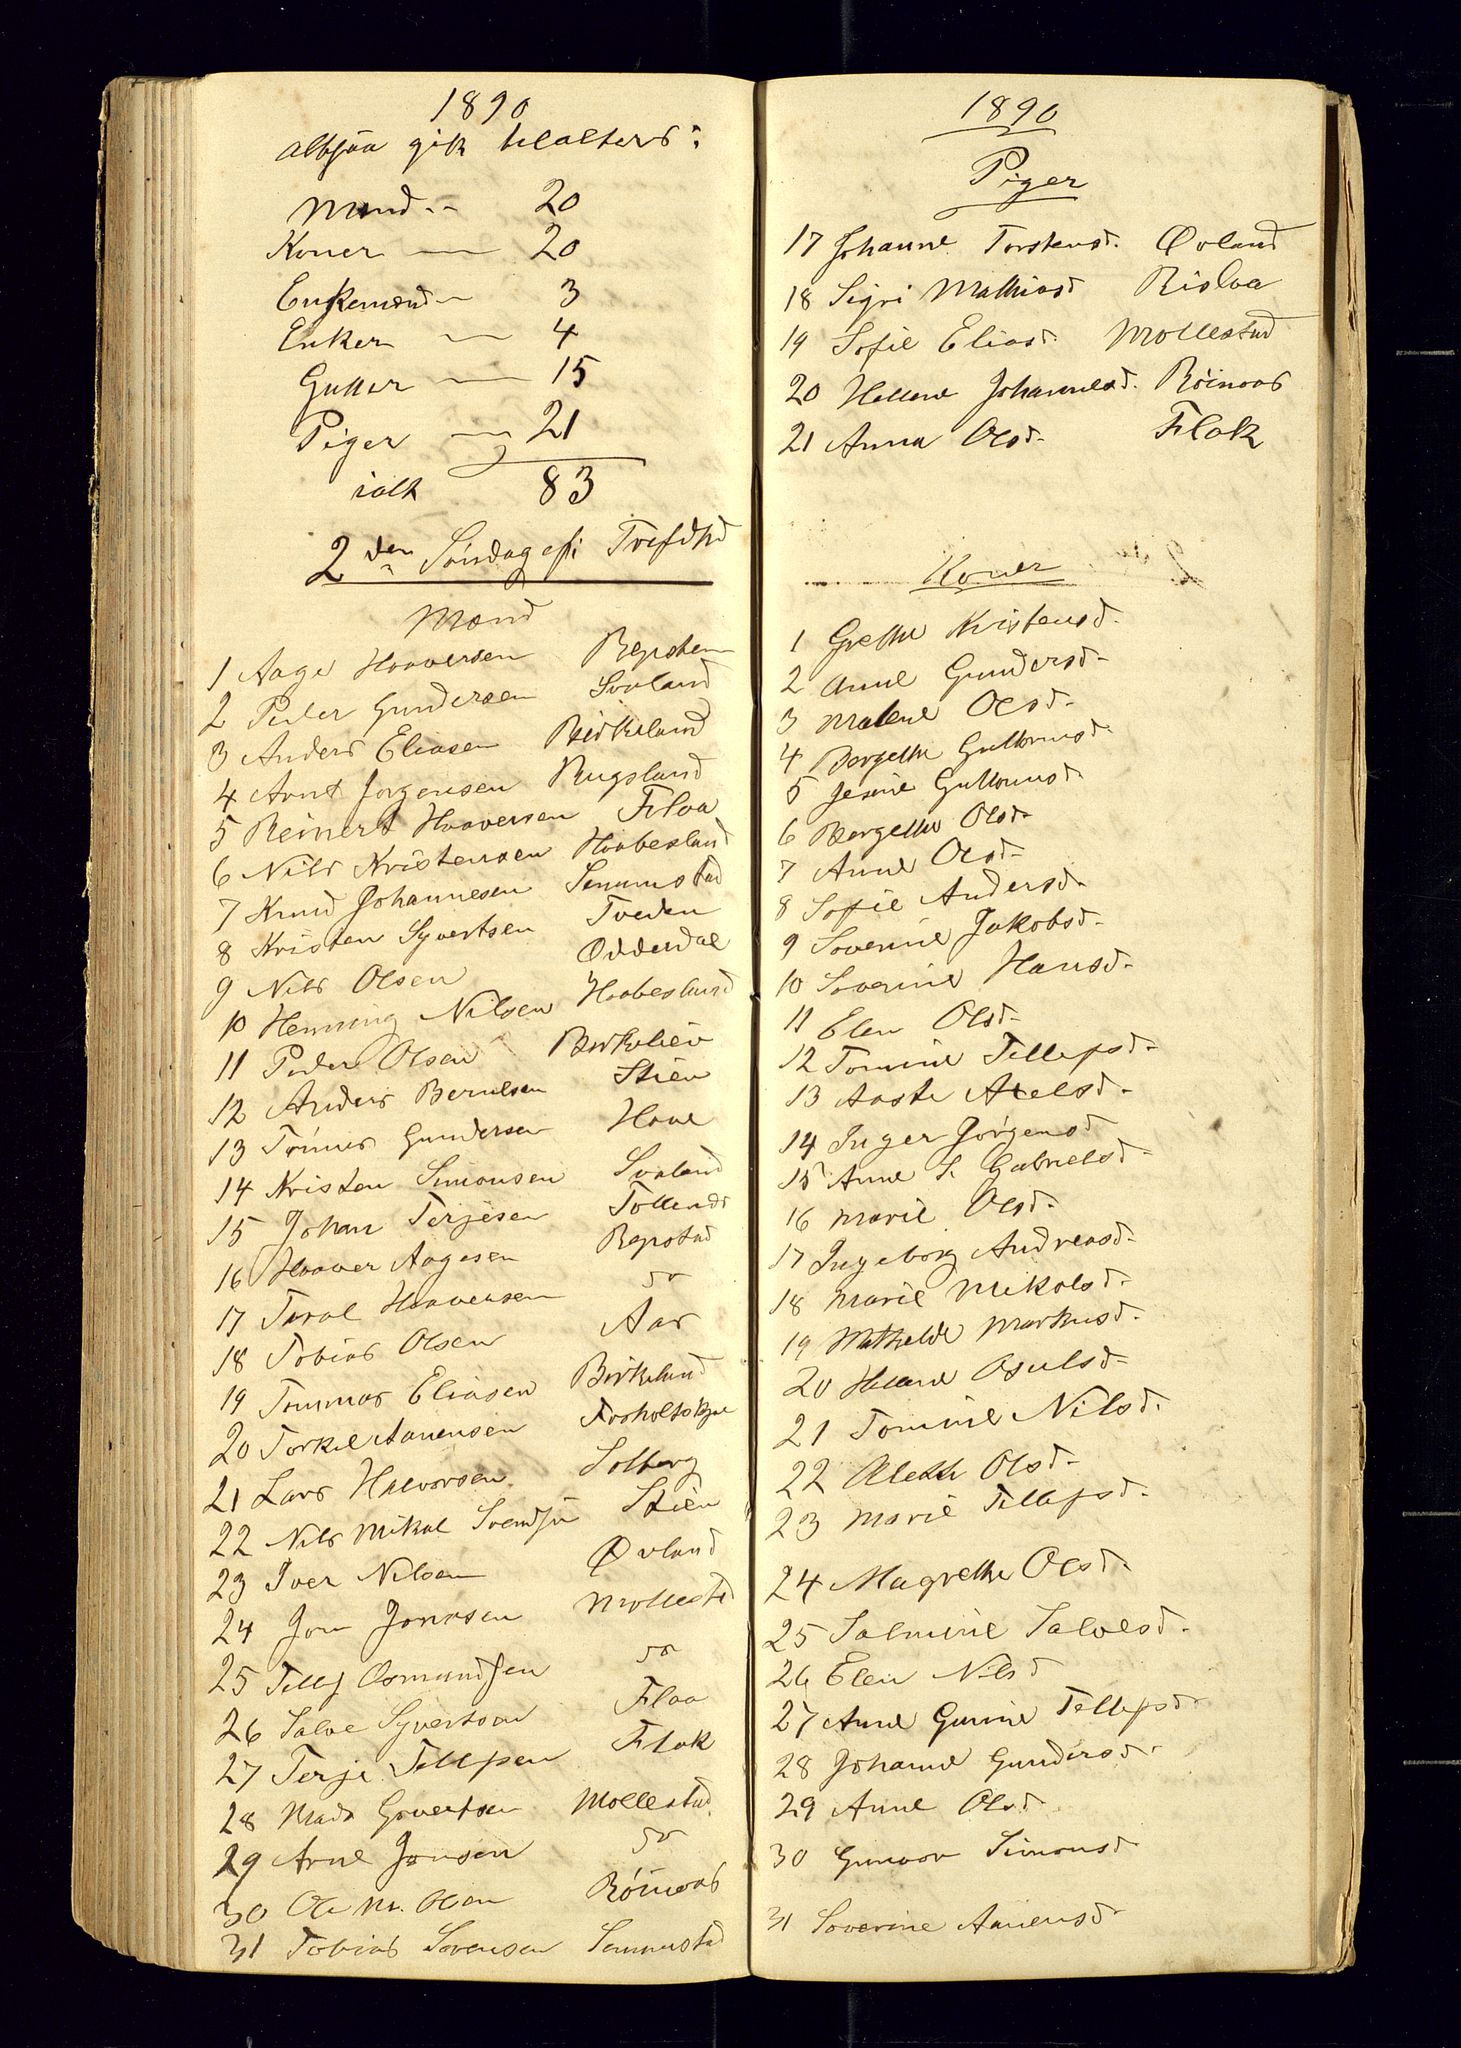 1890
altsaa gik til alters:
Mænd 20
Koner 20
Enkemænd 3
Enker 4
Gutter 15
Piger 21
ialt 83
2den Søndag eft Trefdhd
Mænd
1 Aage Haaversen Repstem
2 Peder Gundersen Svaland
3 Anders Eliasen Birkeland
4 Arnt Jorgensen Rugsland
5 Reinert Haaversen Flaa
6 Nils Kristensen Haabesland
7 Knud Johannesen Senumstad
8 Kristen Syvertsen Tveden
9 Nils Olsen Oddersdal
10 Henning Nilsen Haabesland
11 Peder Olsen Birkelien
12 Anders Berulsen Stien
13 Tönnes Gundersen Haave
14 Kristen Simonsen Svaland
15 Johan Terjesen
16 Haaver Aagesen Repstad
17 Taral Haaversen do
18 Tobias Olsen Aas
19 Tommas Eliasen Birkeland
20 Torkel Aanensen
21 Lars Halvorsen Solberg
22 Nils Mikal Svendsen Stien
23 Iver Nilsen Øvland
24 Jon Jonasen Mollestd
25 Tellef Osmundsen do
26 Salve Syvertsen Flaa
27 Terje Tellefsen Flak
28 Mads Govertsen Mollestad
29 Arne Jensen do
30 Ole M. Olsen Röinaas
31 Tobias Sorensen Senumstad
1890
Piger
17 Johanne Torstensd. Øvland
18 Sigri Mathiasd Rislaa
19 Sofie Eliasd. Mollestad
20 Hellene Johannesd. Röinaas
21 Anna Olsd. Flak
Koner
1 Grethe Kristensd.
2 Anne Gundersd.
3 Malene Olsd.
4 Borgethe Guttormsd.
5 Jesine Guttormsd.
6 Borgethe Olsd.
7 Anne Olsd.
8 Sofie Andersd.
9 Soverine Jakobsd.
10 Soverine Hansd.
11 Elen Olsd.
12 Tomine Tellefsd.
13 Aaste Axelsd.
14 Inger Jörgensd
15 Anne S. Gabrielsd.
16 Marie Olsd.
17 Ingeborg Andreasd.
18 Marie Mikalsd.
19 Mathilde Markusd.
20 Hellene Osulsd.
21 Tomine Nilsd.
22 Alethe Olsd.
23 Marie Tellefsd.
24 Magrethe Olsd.
25 Salmine Salvesd.
26 Elen Nilsd
27 Anne Gurine Tellefsd.
28 Johanne Gundersd.
29 Anne Olsd
30 Gunvor Simonsd.
31 Soverine Aanensd.